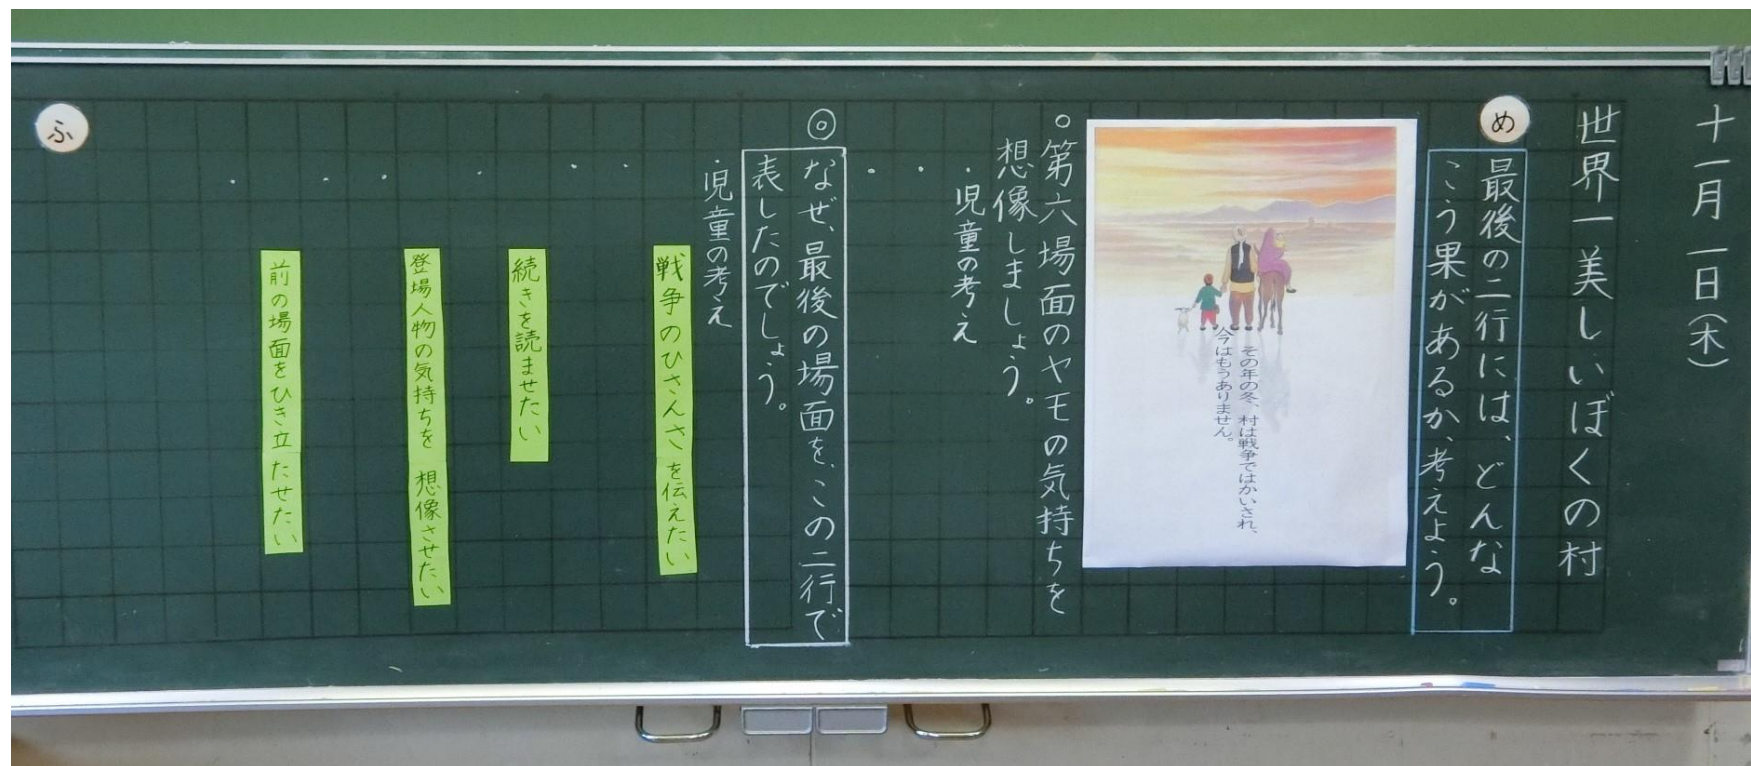 十一月一日(木)
世界一美しいぼくの村
め
最後の二行には、どんな
こう果があるか、考えよう。
その年の冬、村は戦争ではかいされ、
今はもうありません。
○第六場面のヤモの気持ちを
想像しましょう。
・児童の考え
・
・
◎
なぜ、最後の場面を、この二行で
表したのでしょう。
・児童の考え
戦争のひさんさを伝えたい
・
・
続きを読ませたい
・
登場人物の気持ちを想像させたい
・
前の場面をひき立たせたい
・
・
ふ